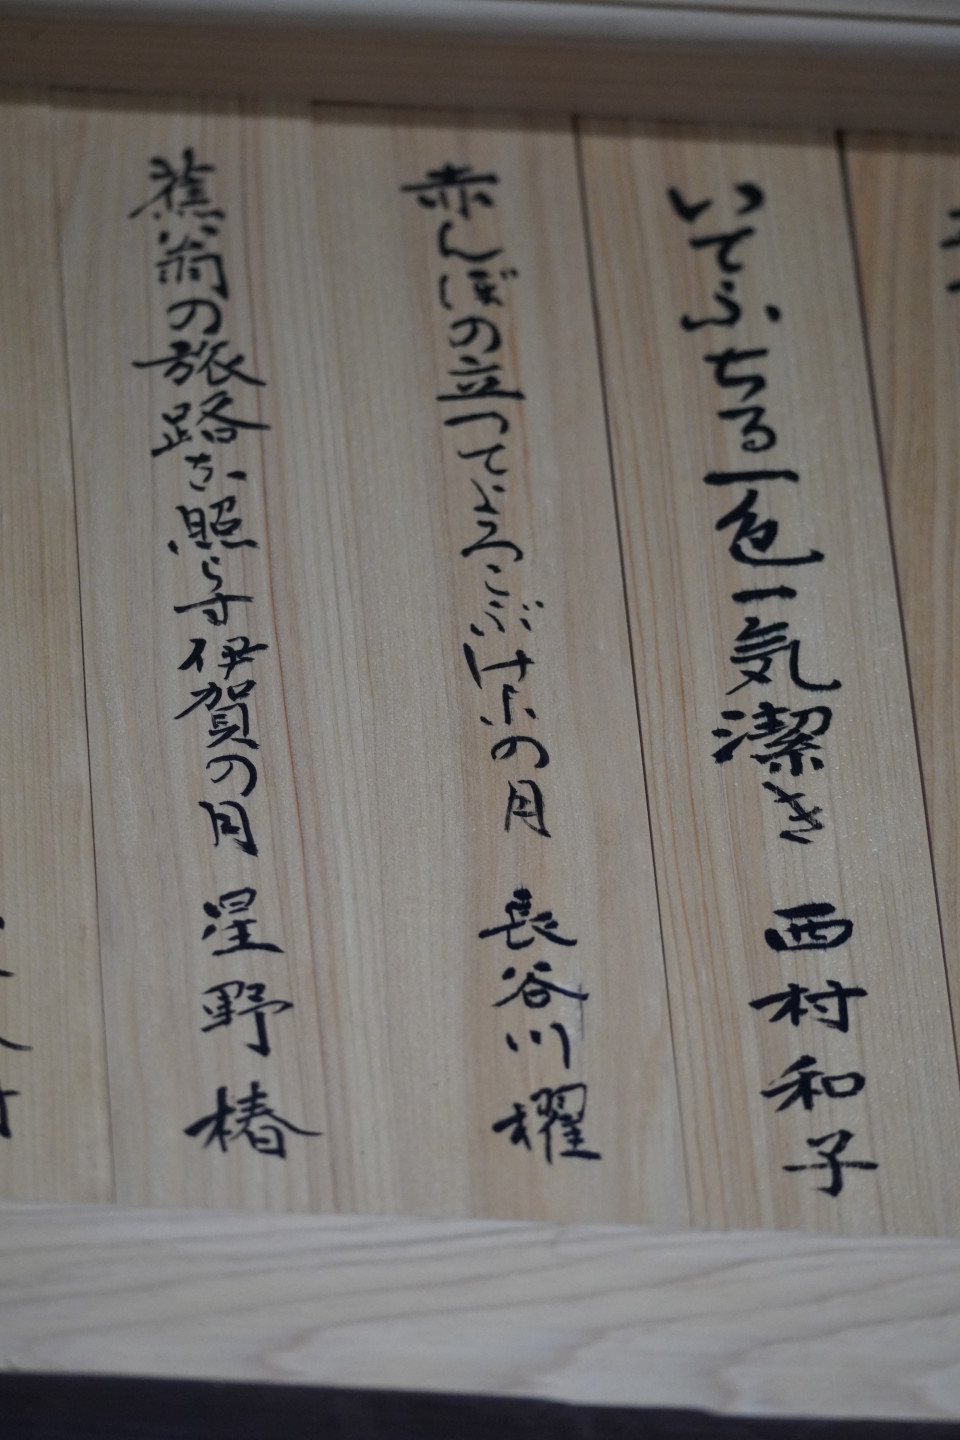 いてふちる一色一気潔き 西村和子
赤んぼの立つてよろこぶけふの月 長谷川櫂
蕉翁の旅路を照らす伊賀の月 星野椿